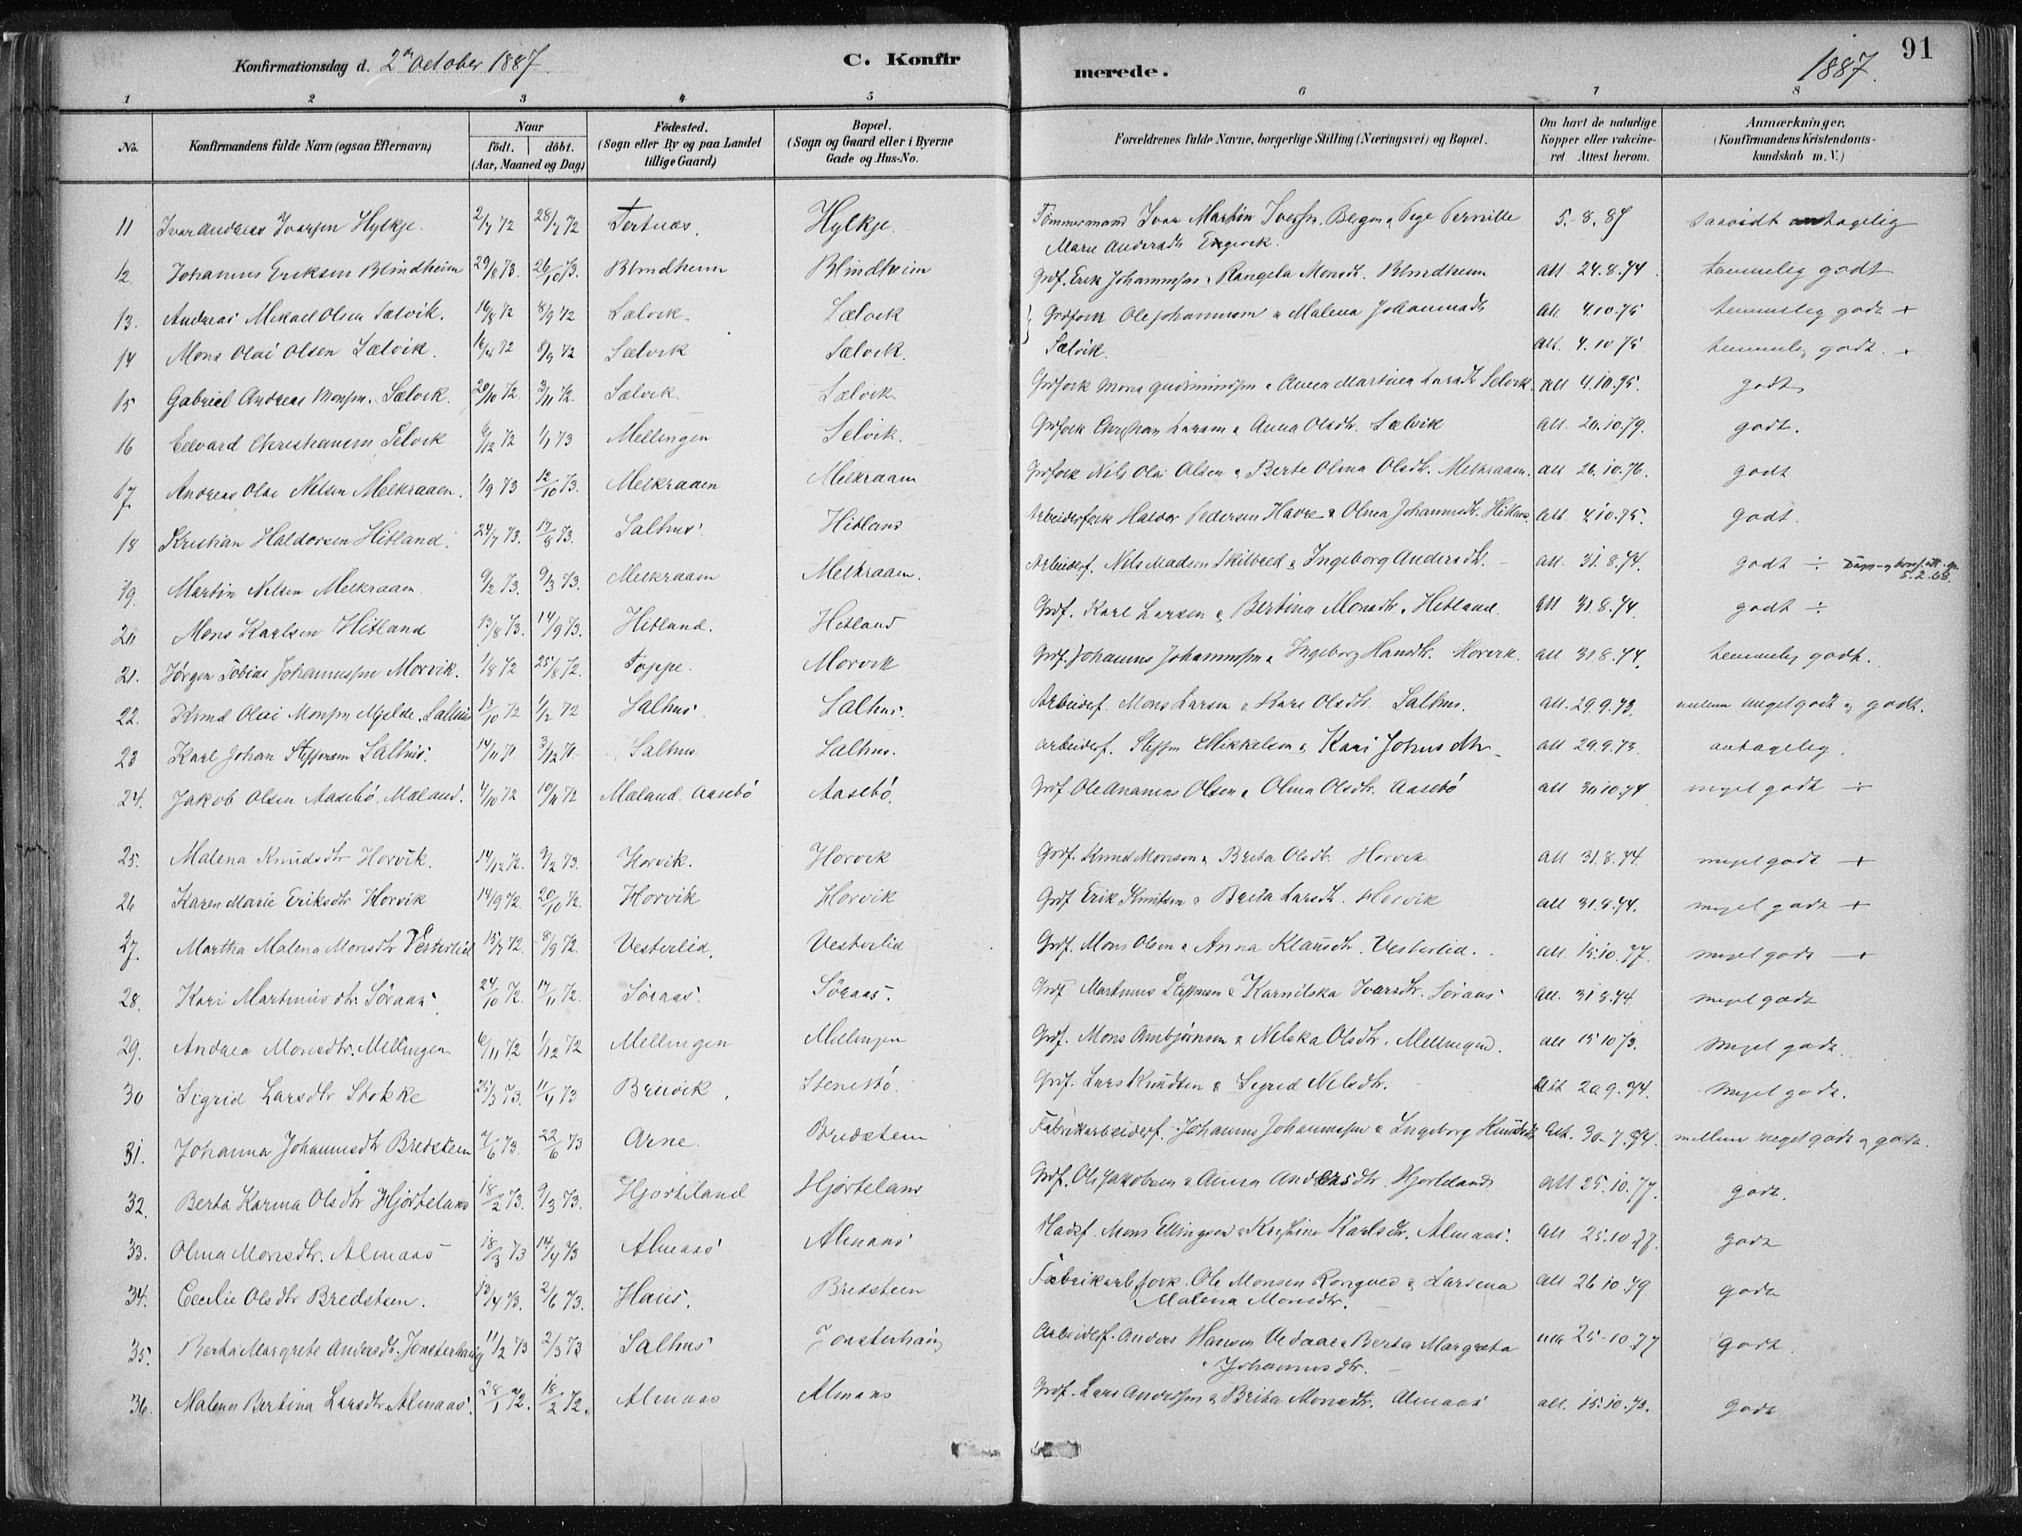 Konfirmationsdag d. 2den October 1887. C. Konfirmerede. 1887. 91
1 2 3 4 5 6 7 8
No. Konfirmandens fulde Navn (ogsaa Efternavn) Naar født. døbt. (Aar, Maaned og Dag) Fødested. (Sogn eller By og paa Landet tillige Gaard) Bopæl. (Sogn og Gaard eller i Byerne Gade og Hus-No. Forældrenes fulde Navne, borgerlige Stilling (Næringsvei) og Bopæl. Om havt de naturlige Kopper eller vakcineret Attest herom. Anmærkninger, (Konfirmandens Kristendomskundskab m. V.)
11 Ivar Andreas Iversen Hylkje. 2/7 72 28/7 72 Tertnæs. Hylkje. Tømmermand Ivar Martin Iversen, Bergen & Pernille 5.8.87 antagelig
Marie Andersdtr
12 Johannes Eriksen Blindheim 29/8 73. 26/10 73. Blindheim Blindheim Grdf. Erik Johannessen & Rangela Monsdtr. Blindheim Att 24.8.74 temmelig godt
13. Andreas Mikael Olsen Sælvik. 16/8 72 8/9 72 Sælvik. Sælvik Grdfolk Ole Johannesen & Malena Johannesdtr Att. 4.10.75 temmelig godt +
14 Mons Olai Olsen Sælvik. 16/8 72 8/9 72 Sælvik Sælvik. Sælvik. Att. 4.10.75 temmelig godt. +
15 Gabriel Andreas Monsen. Sælvik. 20/10 72. 3/11 72. Sælvik Sælvik Grdfolk Mons Gudmundsen & Anna Martines Larsdtr Selvik. Att 4.10.75 godt
16 Edvard Christiansen Selvik 6/12 72 1/1 73 Mellingen Selvik. Grdfolk Christian Larsen & Anna Olsdtr. Sælvik Att. 20.10.79. godt.
17. Andreas Olai Nilsen Melkraaen. 1/9 73 12/10 73. Melkraaen Melkraaen Grdfolk Nils Olai Olsen & Berte Olina Olsdtr. Melkraaen. Att 26.10.76. godt
18 Kristian Haldorsen Hitland. 24/7 73. 17/8 73. Salhus. Hitland Arbeiderfolk Haldor Pedersen Havre & Olina Johannesdtr. Hitland Att. 4.10.75. godt.
19. Martin Nilsen Melkraaen. 9/2 73. 9/3 73. Melkraaen Melkraaen. Arbeiderf. Nils Madsen Skilbred & Ingeborg Andersdtr. Att. 31.8.74. godt ÷ Daap- og konf.att. 5.2.63.
20 Mons Karlsen Hitland 13/8 73. 14/9 73. Hitland. Hitland Grdf. Karl Larsen & Bertina Monsdtr. Hitland Att 31.8.74. godt ÷
21. Jørgen Tobias Johannessen Morvik. 1/8 72 25/8 72. Toppe. Morvik Grdf. Johannes Johannessen & Ingeborg Hansdtr. Morvik. Att 31.8.74. temmelig godt.
22. Knud Olai Monsen Mjelde, Salhus 17/10 72 1/12 72 Salhus. Salhus. Arbeiderf. Mons Larsen & Kari Olsdtr. Salhus. Att. 29.9.73. mellem meget godt og godt.
23 Karl Johan Steffensen Salhus. 14/11 71 3/12 71. Salhus Salhus. Arbeiderf. Steffen Mikkelsen & Kari Johnsdtr Att 29.9.73 antagelig.
24. Jakob Olsen Aasebø, Mæland. 4/10 72 10/11 72 Mæland. Aasebø Aasebø. Grdf. Ole Ananias Olsen & Olina Olsdtr. Aasebø Att 30.10.74 meget godt ÷
25. Malena Knudsdtr Horvik. 14/12 72. 9/2 73. Horvik. Horvik Grdf. Knud Monsen & Brita Olsdtr. Horvik Att 31.8.74 meget godt +
26 Karen Marie Eriksdtr Horvik 14/9 72. 20/10 72. Horvik Horvik Grdf Erik Knudsen & Brita Larsdtr. Horvik Att 31.8.74. meget godt +
27. Martha Malena Monsdtr Vesterlid 15/7 72. 8/9 72. Vesterlid. Vesterlid Grdf. Mons Olsen & Anna Klausdtr. Vesterlid. Att. 15.10.77. meget godt +
28. Kari Martinusdtr. Søraas. 24/10 72. 17/11 72. Søraas. Søraas. Grdf Martinus Steffensen & Karnilska Ivarsdtr. Søraas Att. 31.8.74 meget godt
29. Andrea Monsdtr. Mellingen 6/11 72 1/12 72 Mellingen Mellingen Grdf. Mons Ambjørnsen & Nilska Olsdtr. Mellingen. Att 15.10.73. meget godt.
30 Sigrid Larsdtr Stokke 25/3 73. 11/4 73 Bruvik. Stenebø. Grdf. Lars Knudsen & Sigrid Nilsdtr. Att 20.9.74. meget godt.
31. Johanna Johannesdtr Bredsteen 2/6 73. 22/6 73 Arne. Bredsteen Fabrikarbeiderf. Johannes Johannessen & Ingeborg Knudsdtr Att. 30.7.74. mellem meget godt og godt.
32. Berta Karina Olsdtr Hjorteland 18/2 73. 9/3 73. Hjorteland Hjorteland Grdf. Ole Jakobsen & Anna Andersdtr Hjorteland Att 25.10.77. godt.
33. Olina Monsdtr. Almaas 18/3 73 14/4 73 Almaas Almaas. Mons Ellingsen & Kristine Karlsdtr. Almaas. Att 25.10.77. godt
34. Cecilie Olsdtr Bredsteen. 13/4 73. 2/6 73. Haus. Bredsteen Fabrikarb.folk Ole Monsen Rongved & Larsena Att 26.10.79 godt
Malena Monsdtr.
35. Berta Margrete Andersdtr. Jonsterhaug 11/2 73 2/3 73 Salhus Jonsterhaug Arbeiderf. Anders Hansen Vedaa & Berta Margreta 25.10.77 godt.
Johannesdtr.
36. Malene Bertina Larsdtr. Almaas. 28/1 72. 18/2 72. Almaas Almaas Grdf. Lars Andersen & Brita Monsdtr. Almaas Att. 15.10.73. godt